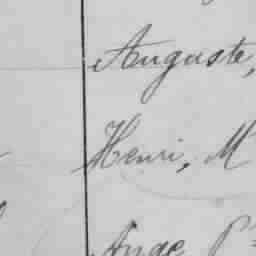 Auguste,
Henri, M
Ange P